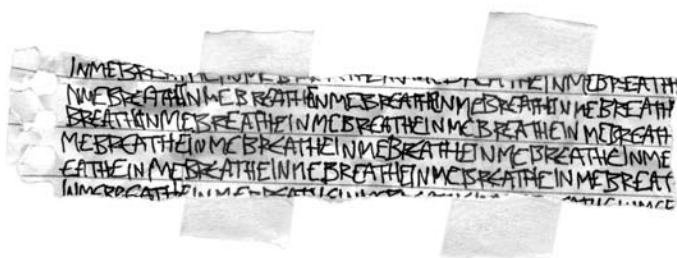 INMEBREATHEINMEBREATHEINMEBREATHEINMEBREATH
NMEBREATHEINMEBREATHEINMEBREATHEINMEBREATHEINMEBREATH
BREATHEINMEBREATHEINMEBREATHEINMEBREATHEINMEBREATH
MEBREATHEINMEBREATHEINMEBREATHEINMEBREATHEINME
EATHEINMEBREATHEINMEBREATHEINMEBREATHEINMEBREAT
INMEBREATHEINMEBREATHEINME